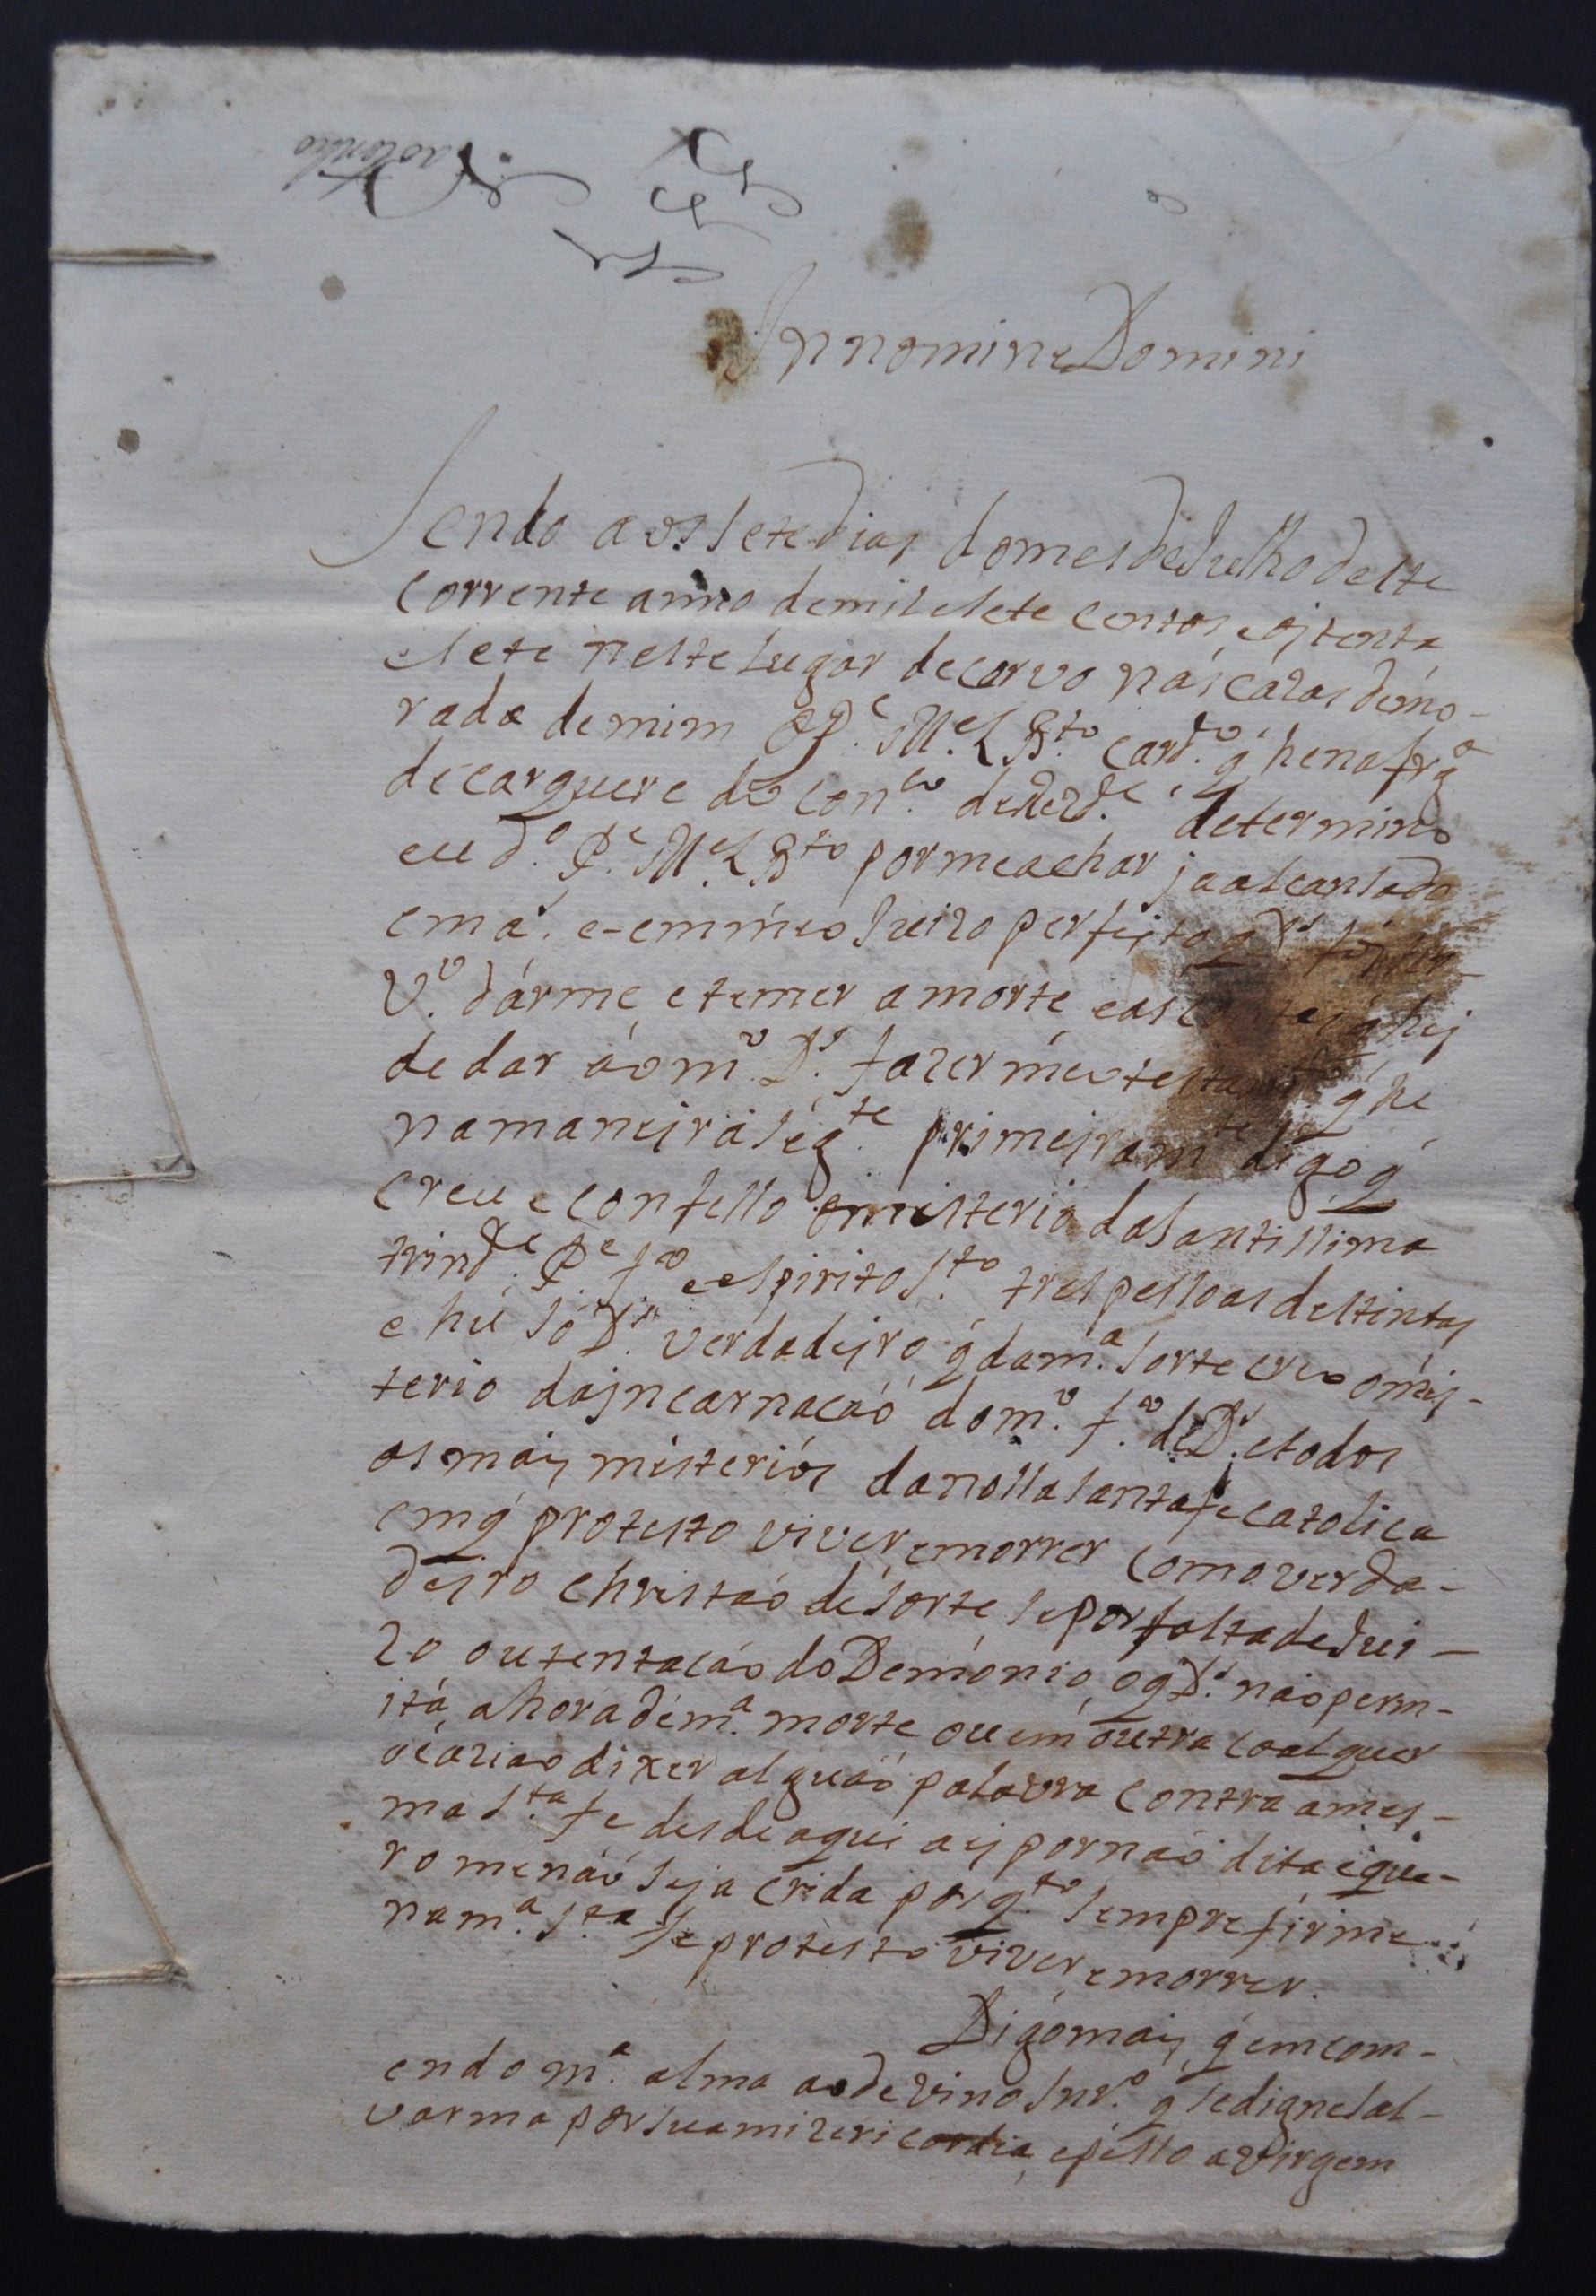 In nomine Domini
Sendo aos sete dias do mes de Julho deste
Corrente anno de mil e sete centos e ojtenta
e sete neste Lugar de corvo nas cazas de mo-
rada de mim o P.e M.el B.to Card.o q̃ he na frg.a
de carquere do con.co de Rezd.e determino
eu d.o P.e M.el B.to por me achar ja alcansado
em a. e em meo Juizo perfejto q̃ D.s foj ser-
v.o dárme e temer a morte e as q̃ hej
de dar ao m.o D.s fazer meo testam.to q̃ he
na manejra seg.te primejram.te digo q̃
creu e confesso o misterio da Santissima
trind.e P.e f.o e espirito S.to tres pessoas destintas
e hú só D.s verdadejro q̃ da m.a sorte creo o mis-
terio da jncarnacáo do m.o f.o de D.s e todos
os mais misterios da nossa santa fe catolica
em q̃ protesto viver e morrer como verda-
dejro christaó de sorte se por falta de Jui-
zo ou tentacáo do Demonio, o q̃ D.s naó perm-
ita, a hora de m.a morte ou em outra coalquer
ocaziaó dixer alguaó palavra contra a mes-
ma S.ta fe desde aqui a ej por naó dita e que-
ro me náo seja crida pois q.to sempre firme
na m.a S.ta fe protesto viver e morrer.
Digo mais q̃ emcom-
endo m.a alma ao devino Snr.o q̃ se digne sal-
varma por sua mizericordia, e pesso a virgem